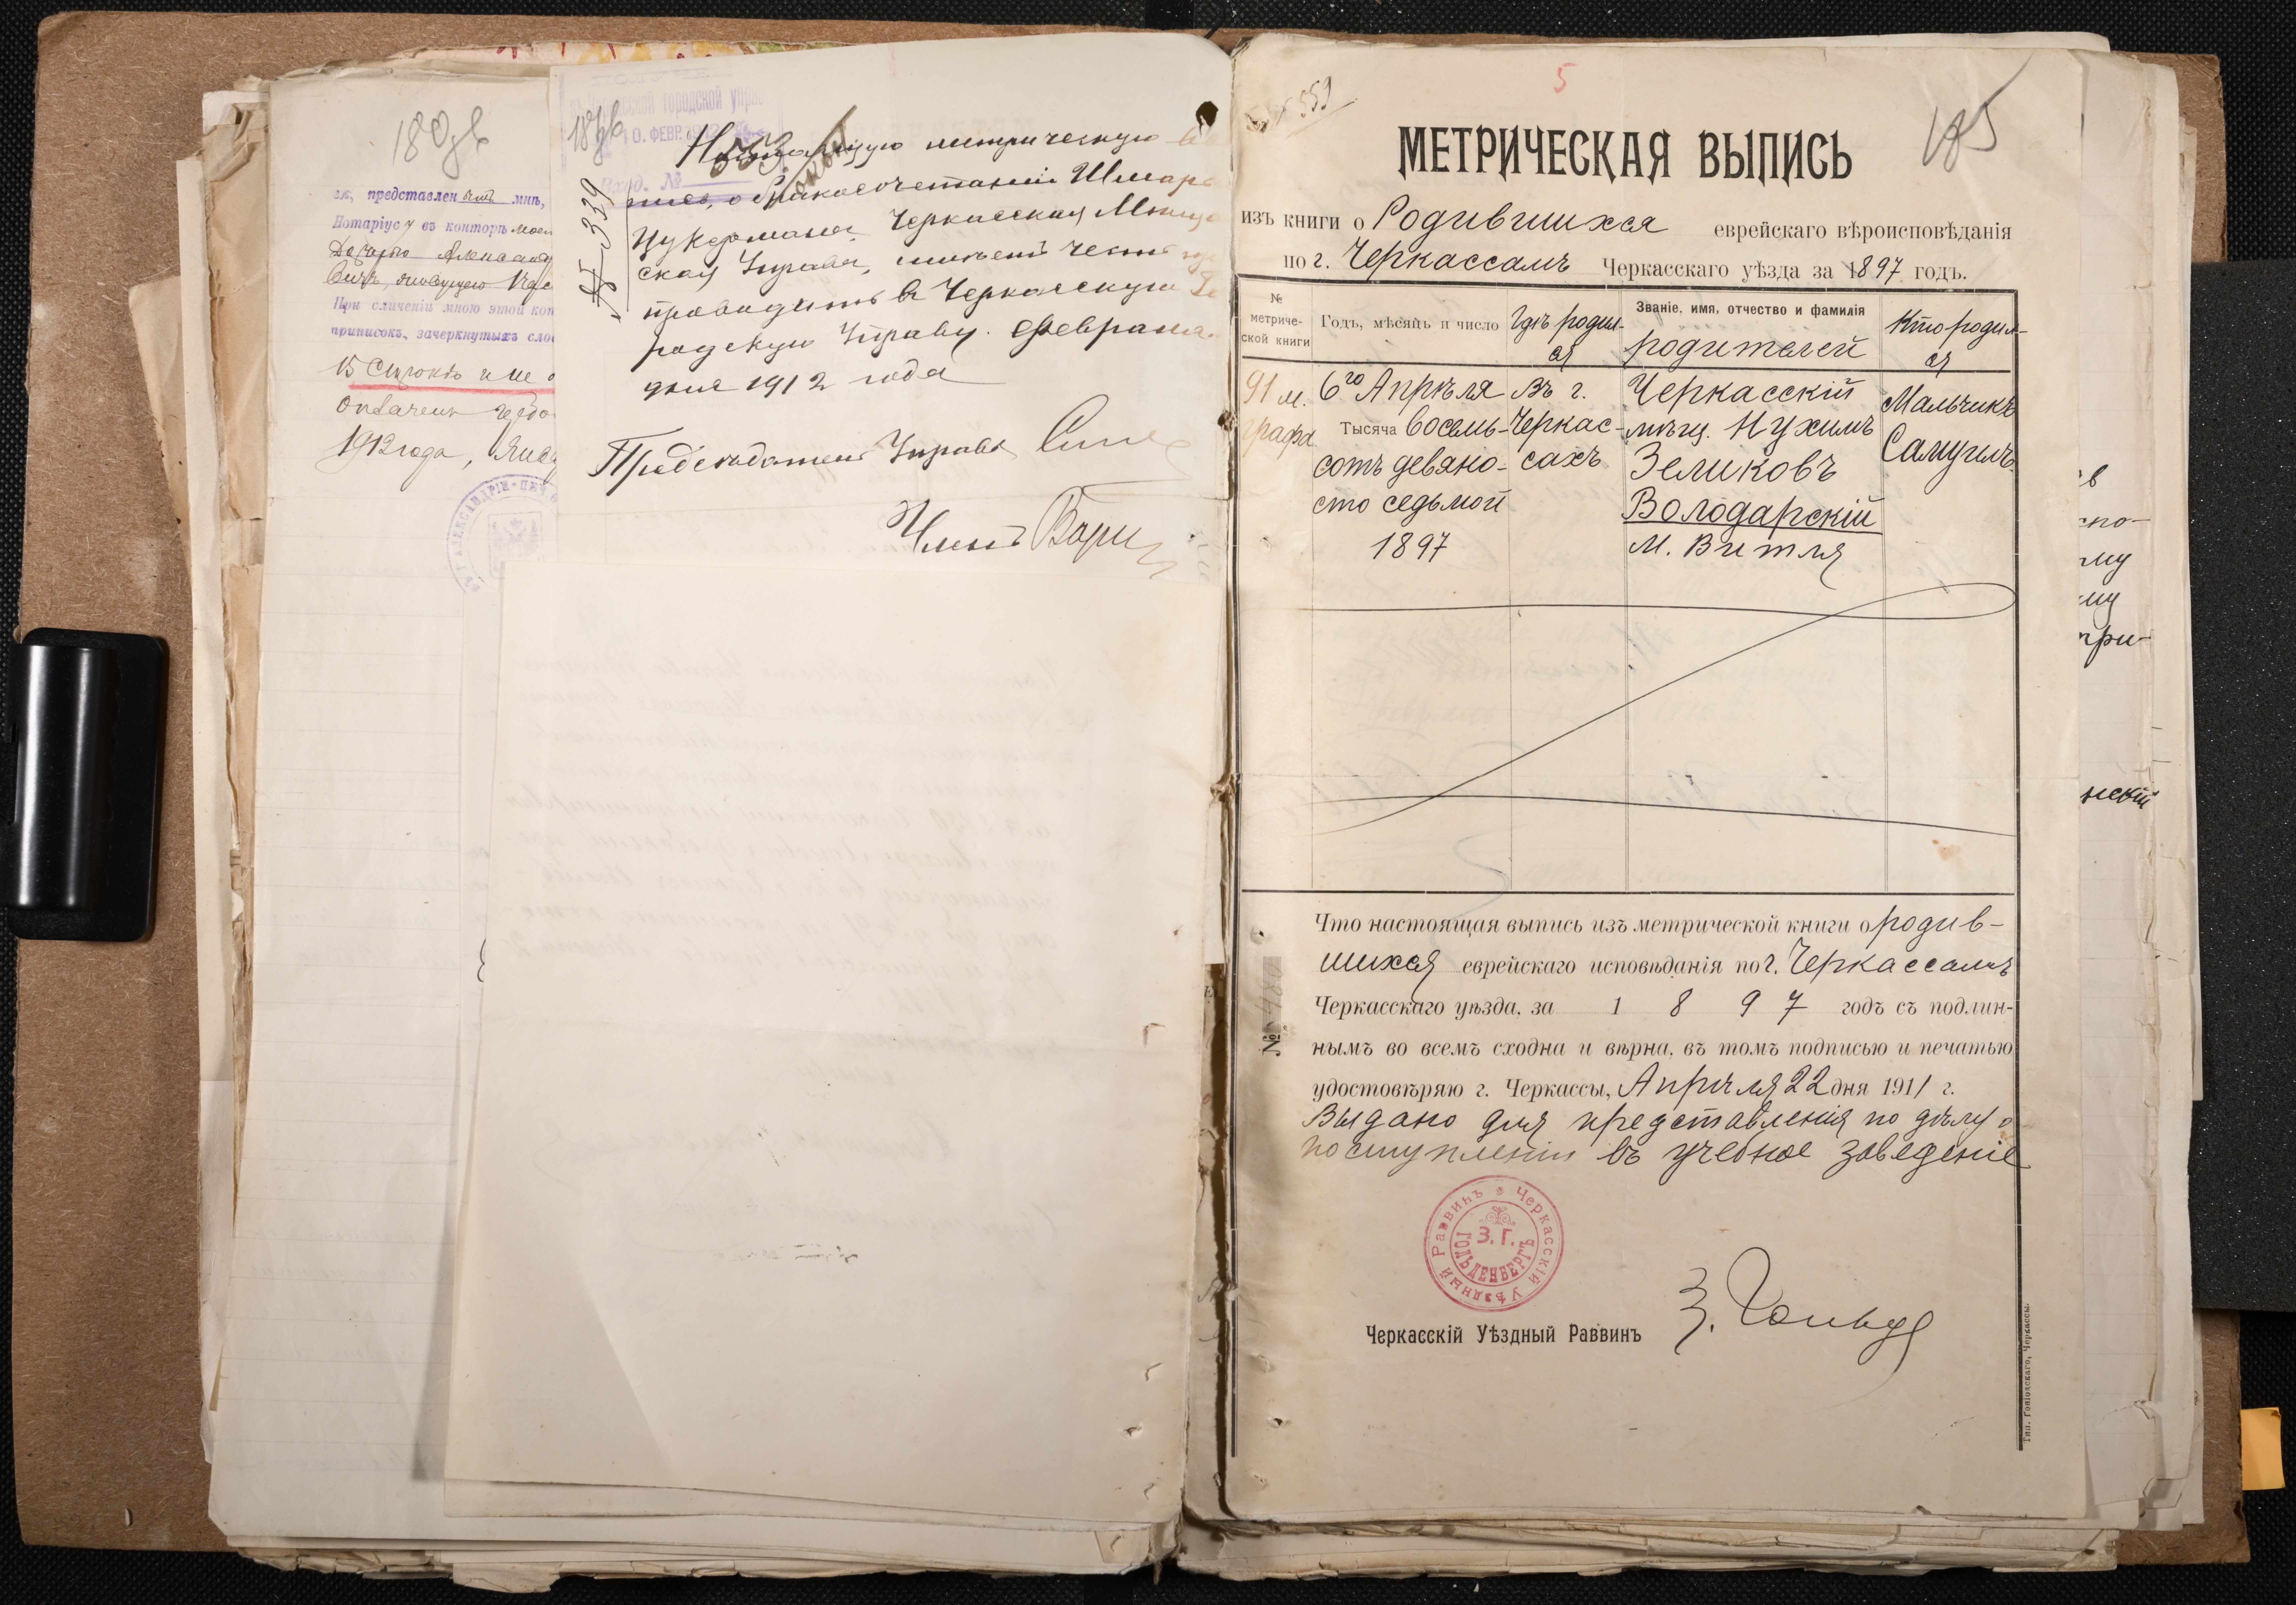 180об
представлен мнѣ,
Нотаріусу въ конторѣ моей
При сличеніи мною этой коп
приписокъ, зачеркнутыхъ сло
15 Строкъ и не о
1912 года, Янв
187об
городской управ
10. ФЕВР. 1912
Вход. №
553
№ 339
Настоящую метрическую вы
пись, о бракосочетаніи Шмар
Цукермана, Черкасская Мѣщан
ская Управа, имѣетъ честь пре
проводить въ Черкасскую Го
родскую Управу. Февраля
дня 1912 года
Предсѣдатель Управы
Членъ
559
5
185
МЕТРИЧЕСКАЯ ВЫПИСЬ
изъ книги о Родившихся еврейскаго вѣроисповѣданія
по г. Черкассамъ Черкасскаго уѣзда за 1897 годъ.
№ метриче-ской книги
Годъ, мѣсяцъ и число
Гдѣ родил-ся
Званіе, имя, отчество и фамилія родителей
Кто родил-ся
91 м. графа
6го Апрѣля
Тысяча восемь-
сотъ девяно-
сто седьмой
1897
Въ г.
Черкас-
сахъ
Черкасскій
мѣщ. Нухимъ
Зеликовъ
Володарскій
М. Витля
Мальчикъ
Самуилъ.
Что настоящая выпись изъ метрической книги о родив-
шихся еврейскаго исповѣданія по г. Черкассамъ
Черкасскаго уѣзда, за 1 8 9 7 годъ съ подлин-
нымъ во всемъ сходна и вѣрна, въ томъ подписью и печатью
удостовѣряю г. Черкассы, Апрѣля 22 дня 1911 г.
Выдано для представленія по дѣлу о
поступленіи въ учебное заведеніе
№
Черкасскій Уѣздный Раввинъ
З. Г.
ГОЛЬДЕНБЕРГЪ
Черкасскій Уѣздный Раввинъ
З. Гольд
Тип. Гоніодскаго, Черкассы.
в
спо-
му
му
при-
нскій